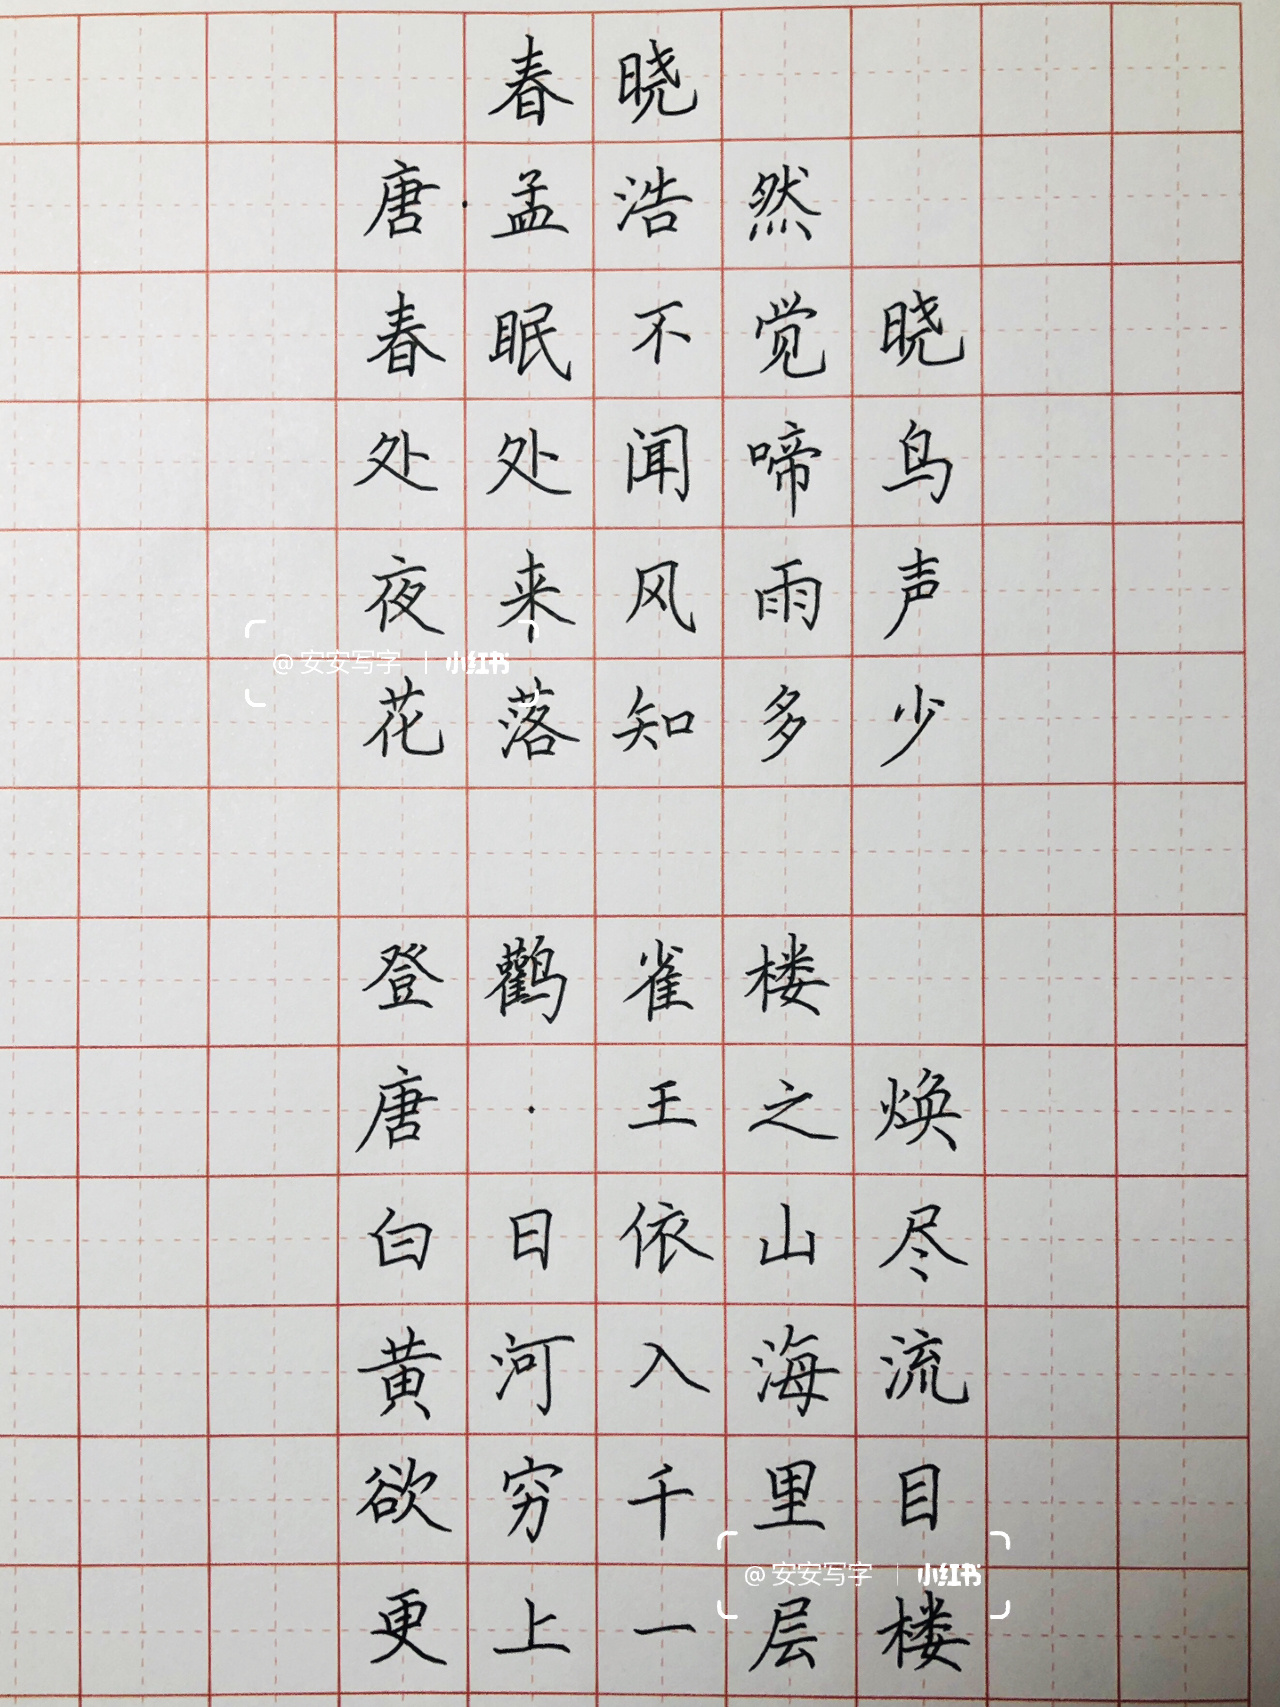 春晓
唐·孟浩然
春眠不觉晓
处处闻啼鸟
夜来风雨声
@安安写字 | 小红书
花落知多少
登鹳雀楼
唐·王之焕
白日依山尽
黄河入海流
欲穷千里目
@安安写字 | 小红书
更上一层楼